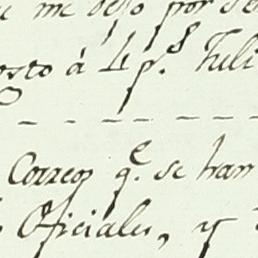 me dejo por
á 4 p.s Juli
Correos q.e se han
Oficiales, y